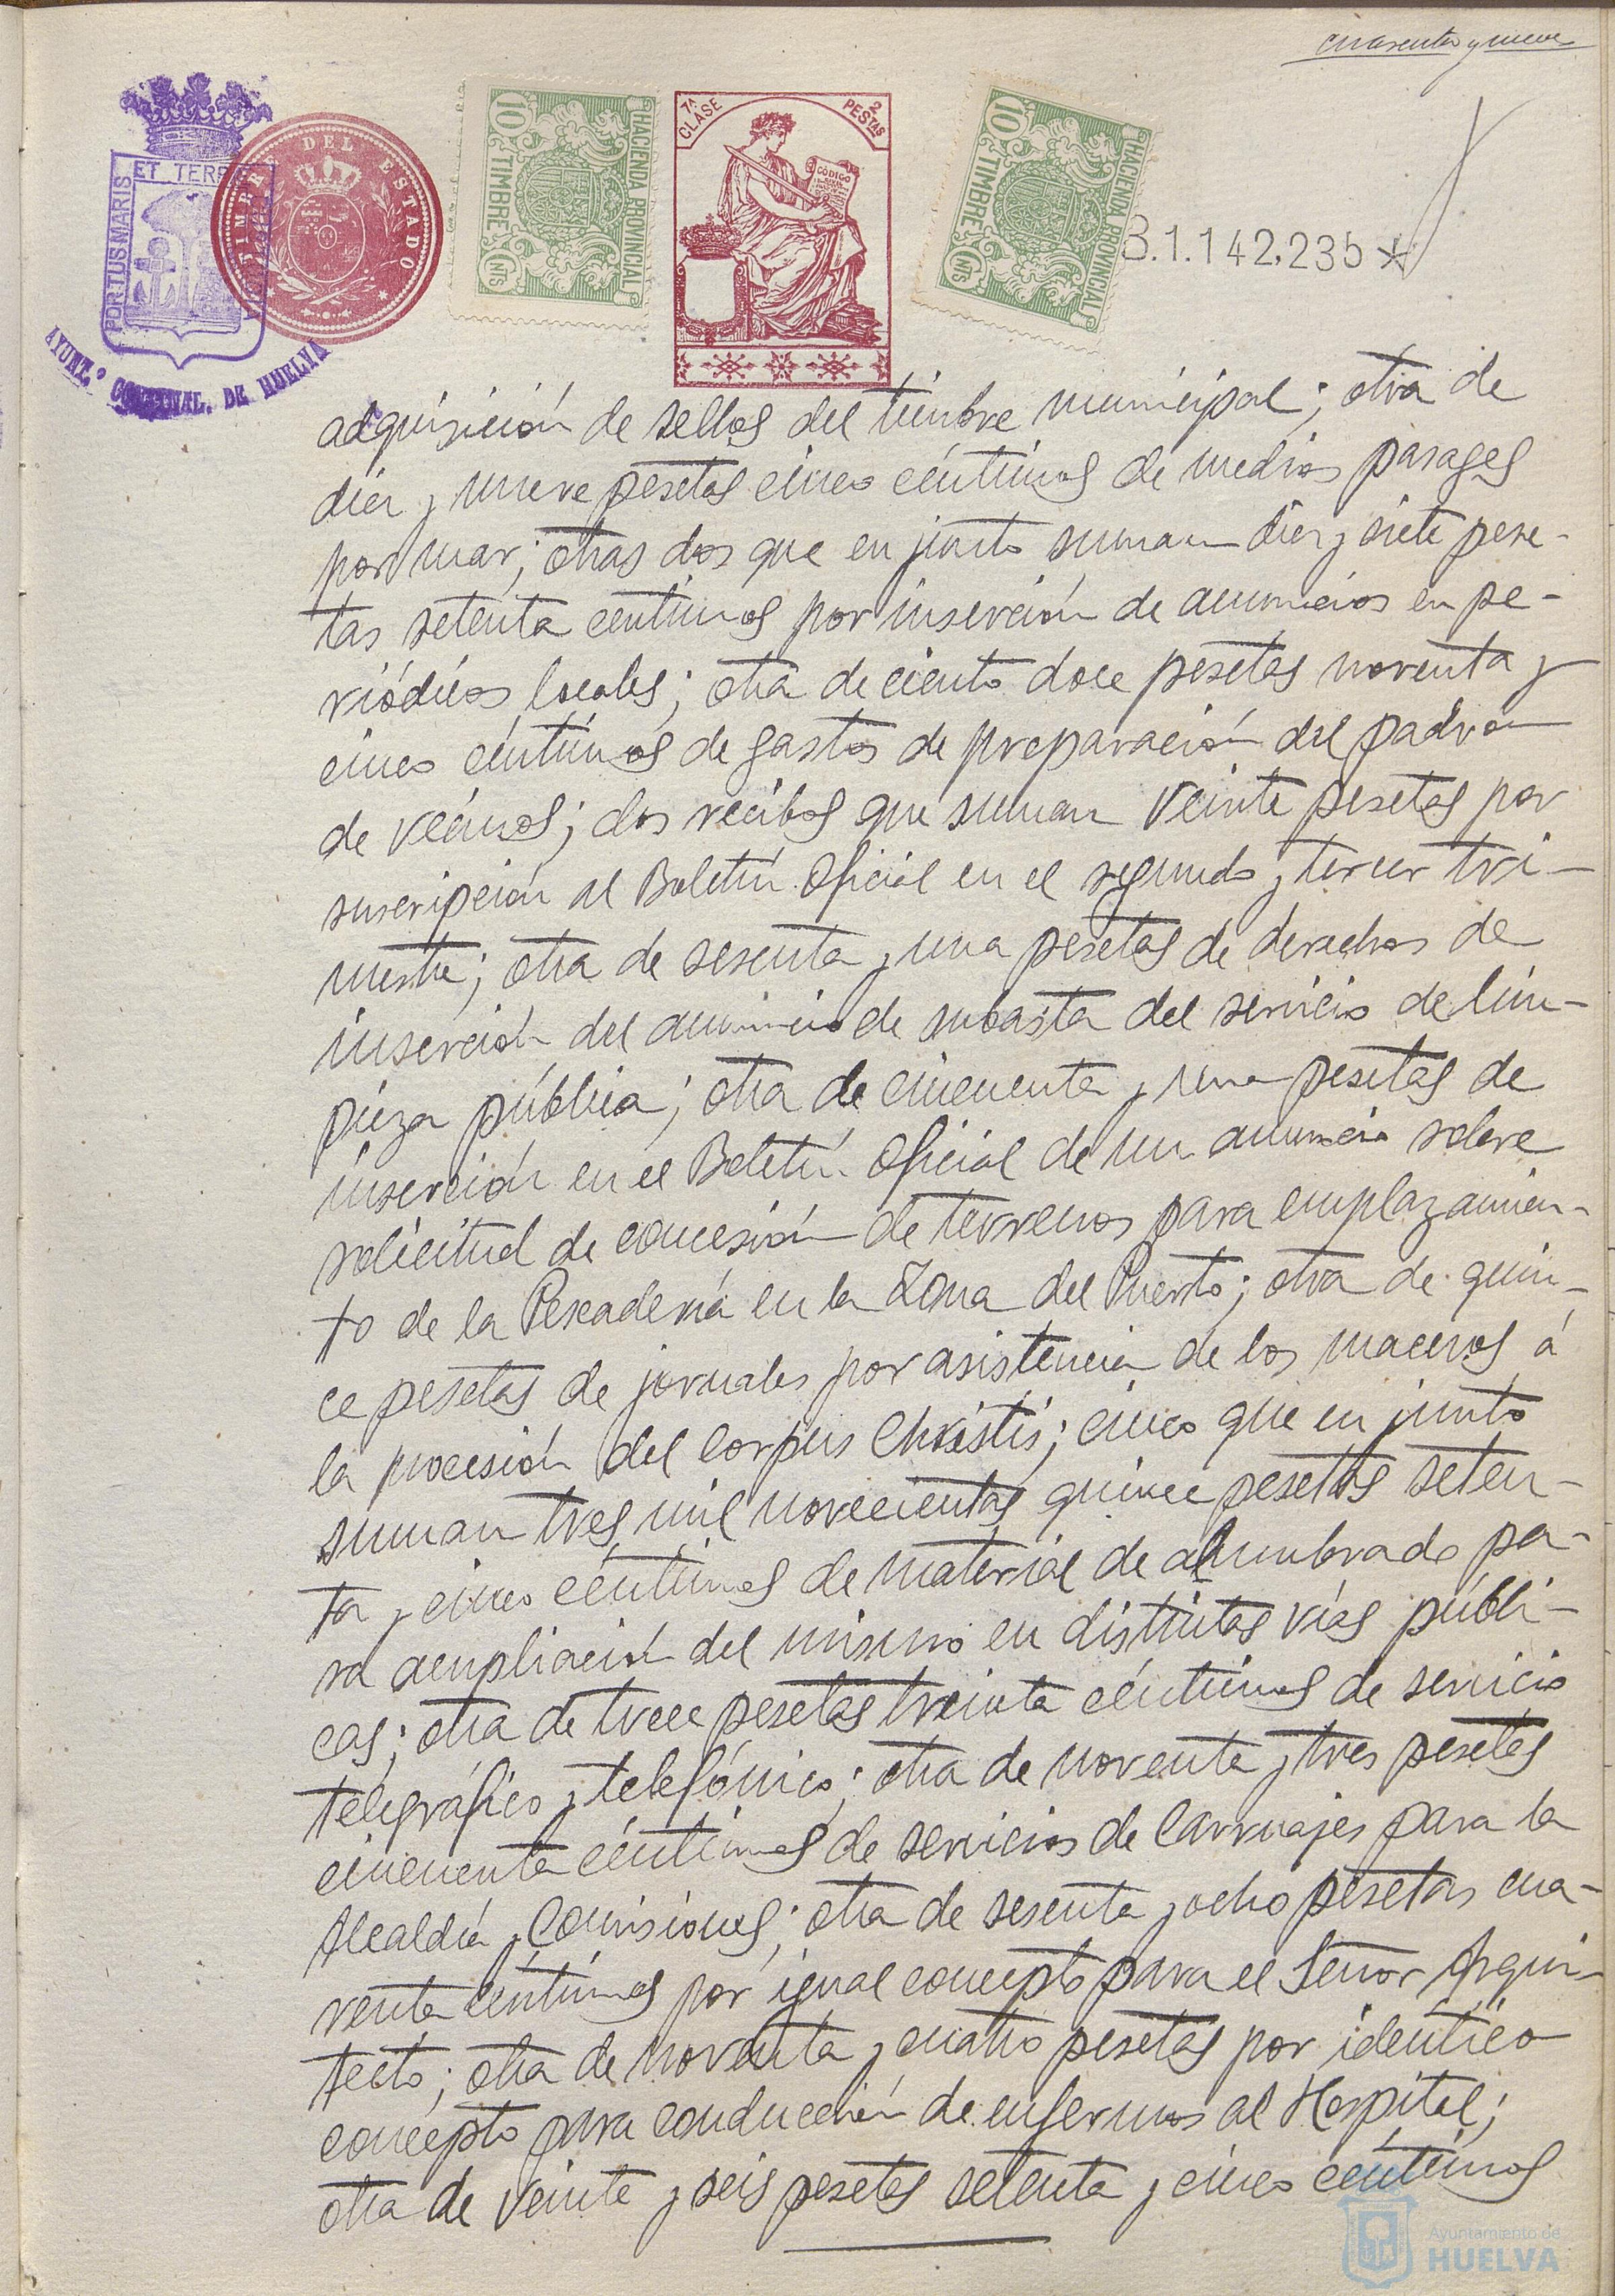 cuarenta y nueve
PORTUS MARIS
ET TERR
AYUNT.º CONSTNAL. DE HUELVA
TIMBRE DEL ESTADO
HACIENDA PROVINCIAL
10 TIMBRE CNTS
7ª CLASE
2 PESTAS
CÓDIGO
HACIENDA PROVINCIAL
10 TIMBRE CNTS
B.1.142,235*
adquisición de sellos del timbre municipal; otra de
diez y nueve pesetas cinco céntimos de medios pasages
por mar; otras dos que en junto suman diez y siete pese-
tas setenta céntimos por inserción de anuncios en pe-
riódicos locales; otra de ciento doce pesetas noventa y
cinco céntimos de gastos de preparación del padron
de vecinos; dos recibos que suman veinte pesetas por
suscripción al Boletín Oficial en el segundo y tercer tri-
mestre; otra de sesenta y una pesetas de derechos de
inserción del anuncio de subasta del servicio de lim-
pieza pública; otra de cincuenta y una pesetas de
inserción en el Boletín Oficial de un anuncio sobre
solicitud de concesión de terrenos para emplazamien-
to de la Pescadería en la Zona del Puerto; otra de quin-
ce pesetas de jornales por asistencia de los maceros á
la procesión del Corpus Christis; cinco que en junto
suman tres mil novecientas quince pesetas seten-
ta y cinco céntimos de material de alumbrado pa-
ra ampliación del mismo en distintas vías públi-
cas; otra de trece pesetas treinta céntimos de servicio
telegráfico y telefónico; otra de noventa y tres pesetas
cincuenta céntimos de servicios de Carruajes para la
Alcaldía y Comisiones; otra de sesenta y ocho pesetas cua-
renta céntimos por igual concepto para el Señor Arqui-
tecto; otra de noventa y cuatro pesetas por identico
concepto para conducción de enfermos al Hospital;
otra de veinte y seis pesetas setenta y cinco céntimos
Ayuntamiento de
HUELVA